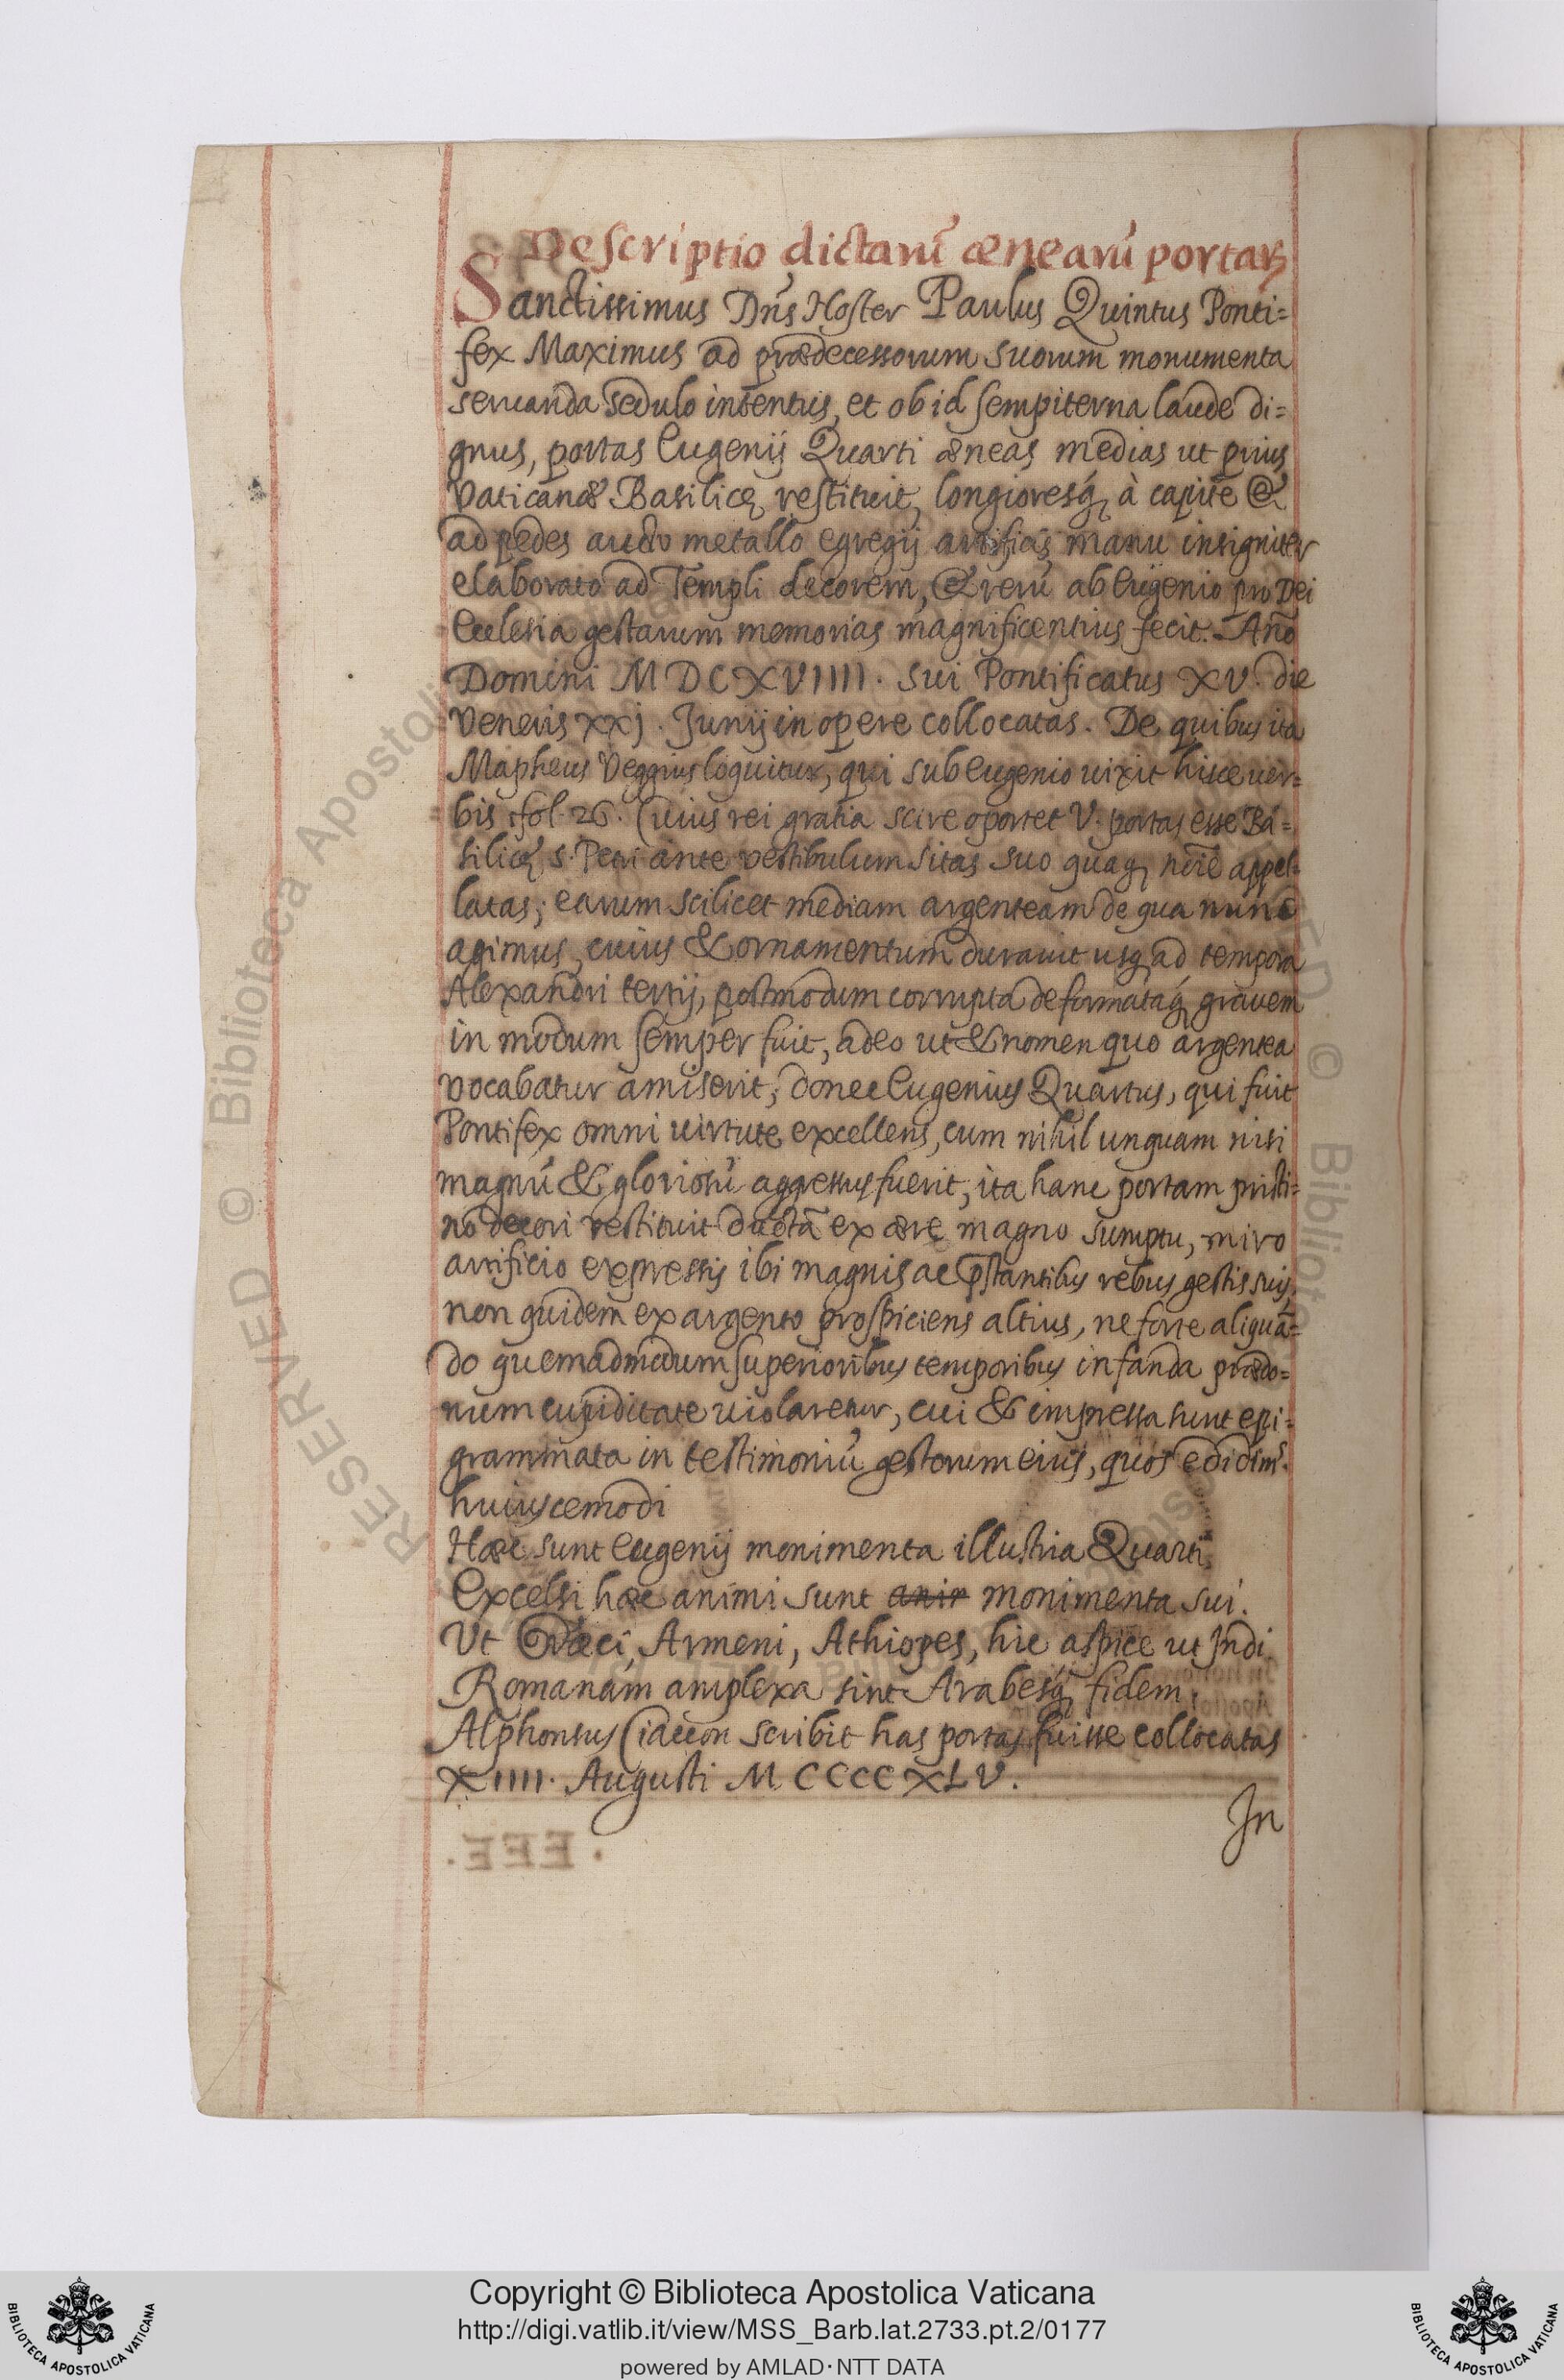 Descriptio dictarū ænearū portaꝝ
Sanctissimus Dn̄s Noster Paulus Quintus Ponti=
fex Maximus ad prædecessorum suorum monumenta
seruanda sedulo intentus, et ob id sempiterna laude di=
gnus, portas Eugenij Quarti æneas medias ut prius
Vaticanæ Basilicę restituit, longioresq́ à capite &
ad pedes aucto metallo egregij artificis manu insigniter
elaborato ad Templi decorem, & rerū ab Eugenio pro Dei
Ecclesia gestarum memorias magnificentius fecit. Año
Domini MDCXVIIII. sui Pontificatus XV. die
Veneris xxj. Junij in opere collocatas. De quibus ita
Mapheus Veggius loquitur, qui sub Eugenio uixit hisce uer=
bis fol. 26. Cuius rei gratia scire oportet V. portas esse Ba=
silicę S. Petri ante vestibulum sitas suo quaq noīe appel=
latas; earum scilicet mediam argenteam de qua nunc
agimus, cuius & ornamentum durauit usq ad tempora
Alexandri tertij, postmodum corrupta deformataq́ grauem
in modum semper fuit, adeo ut & nomen quo argentea
vocabatur amiserit; donec Eugenius Quartus, qui fuit
Pontifex omni uirtute excellens, cum nihil unquam nisi
magnū & gloriosū aggressus fuerit, ita hanc portam pristi=
no decori restituit ductā ex ære magno sumptu, miro
artificio expressis ibi magnis ac p̄stantibus rebus gestis suis,
non quidem ex argento prospiciens altius, ne forte aliquā=
do quemadmodum superioribus temporibus infanda prædo=
num cupiditate uiolaretur, cui & impressa sunt epi=
grammata in testimoniū gestorum eius, quos edidim'.
huiuscemodi
Hæc sunt Eugenij monimenta illustria Quarti,
Excelsi hæc animi sunt anir monimenta sui.
Vt Græci, Armeni, Athiopes, hic aspice ut Jndi
Romanam amplexa sint Arabesq́ fidem.
Alphonsus Ciaccon scribit has portas fuisse collocatas
XIIII. Augusti MCCCCXLV.
Jn
RESERVED © Biblioteca Apostolica
Copyright © Biblioteca Apostolica Vaticana
http://digi.vatlib.it/view/MSS_Barb.lat.2733.pt.2/0177
powered by AMLAD·NTT DATA
BIBLIOTECA APOSTOLICA VATICANA
BIBLIOTECA APOSTOLICA VATICANA